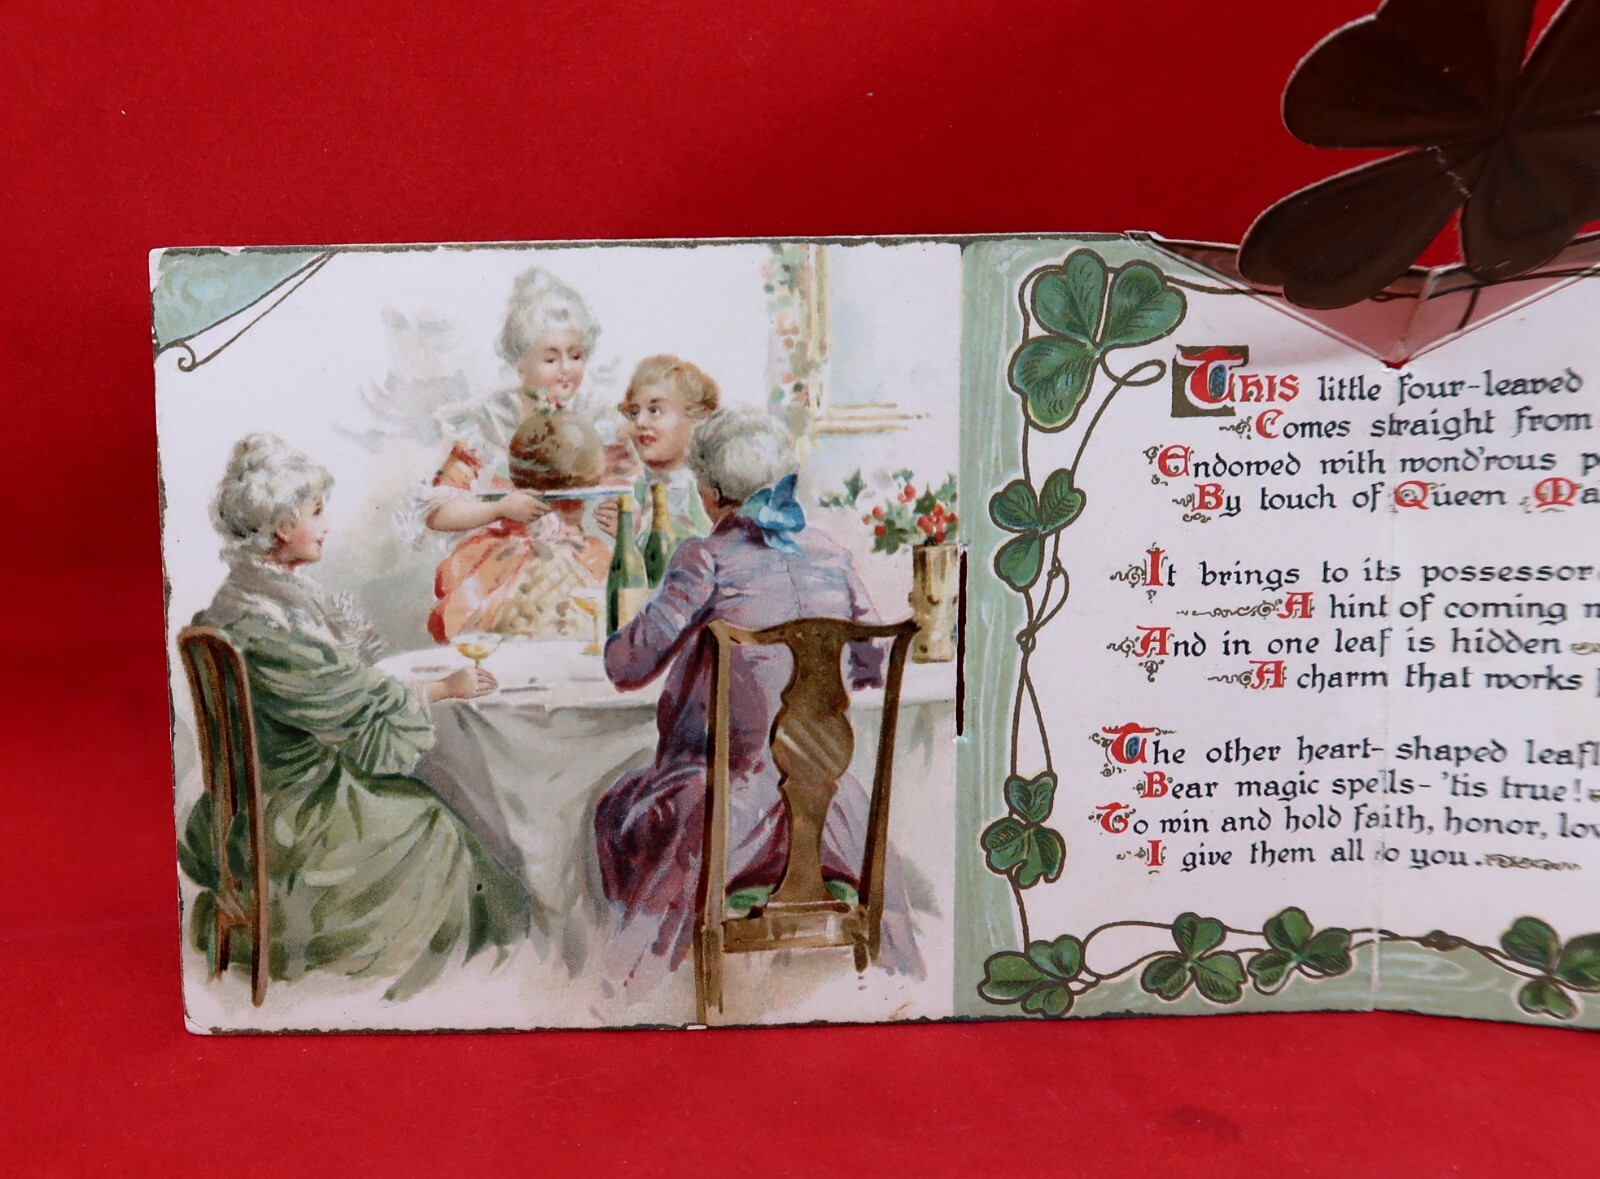 This little four-leaved
Comes straight from
Endowed with wond'rous
By touch of Queen
It brings to its possessor
A hint of coming
And in one leaf is hidden
A charm that works
The other heart-shaped
Bear magic spells- 'tis true!
To win and hold faith, honor,
I give them all to you.